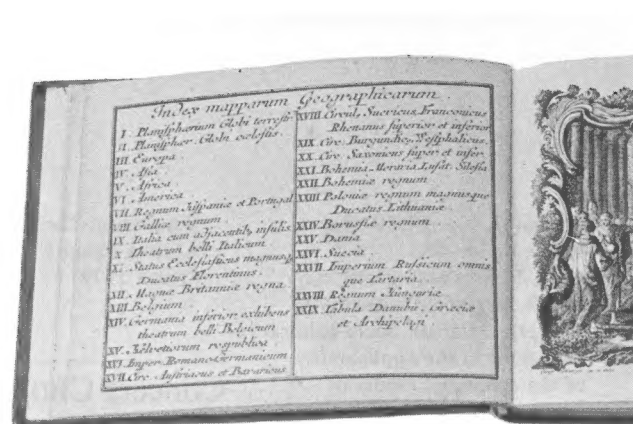 Index mapparum Geographicarum.
I. Planisphærium Globi terrestr:
II. Planisphær: Globi cœlestis.
III. Europa.
IV. Asia
V. Africa
VI. America
VII. Regnum Hispaniæ et Portugal
VIII. Galliæ regnum.
IX. Italia cum adjacentib, insulis
X. Theatrum belli Italicum
XI. Status Ecclesiasticus magnusq
Ducatus Florentinus.
XII. Magnæ Britanniæ regna.
XIII. Belgium.
XIV. Germania inferior exhibens
theatrum belli Belgicum
XV. Helvetiorum respublica.
XVI. Imper. Romano-Germanicum.
XVII. Circ. Austriacus et Bavaricus
XVIII. Circul. Suevicus, Franconicus
Rhenanus superior et inferior
XIX. Circ. Burgundicq, Westphalicus.
XX. Circ. Saxonicus super. et infer.
XXI. Bohemia, Moravia Lusat. Silesia
XXII. Bohemiæ regnum
XXIII. Poloniæ regnum magnusque
Ducatus Lithuaniæ
XXIV. Borussiæ regnum.
XXV. Dania
XXVI. Suecia.
XXVII. Imperium Russicum omnis
que Tartaria.
XXVIII. Regnum Hungariæ
XXIX. Tabula Danubii, Græciæ
et Archipelagi